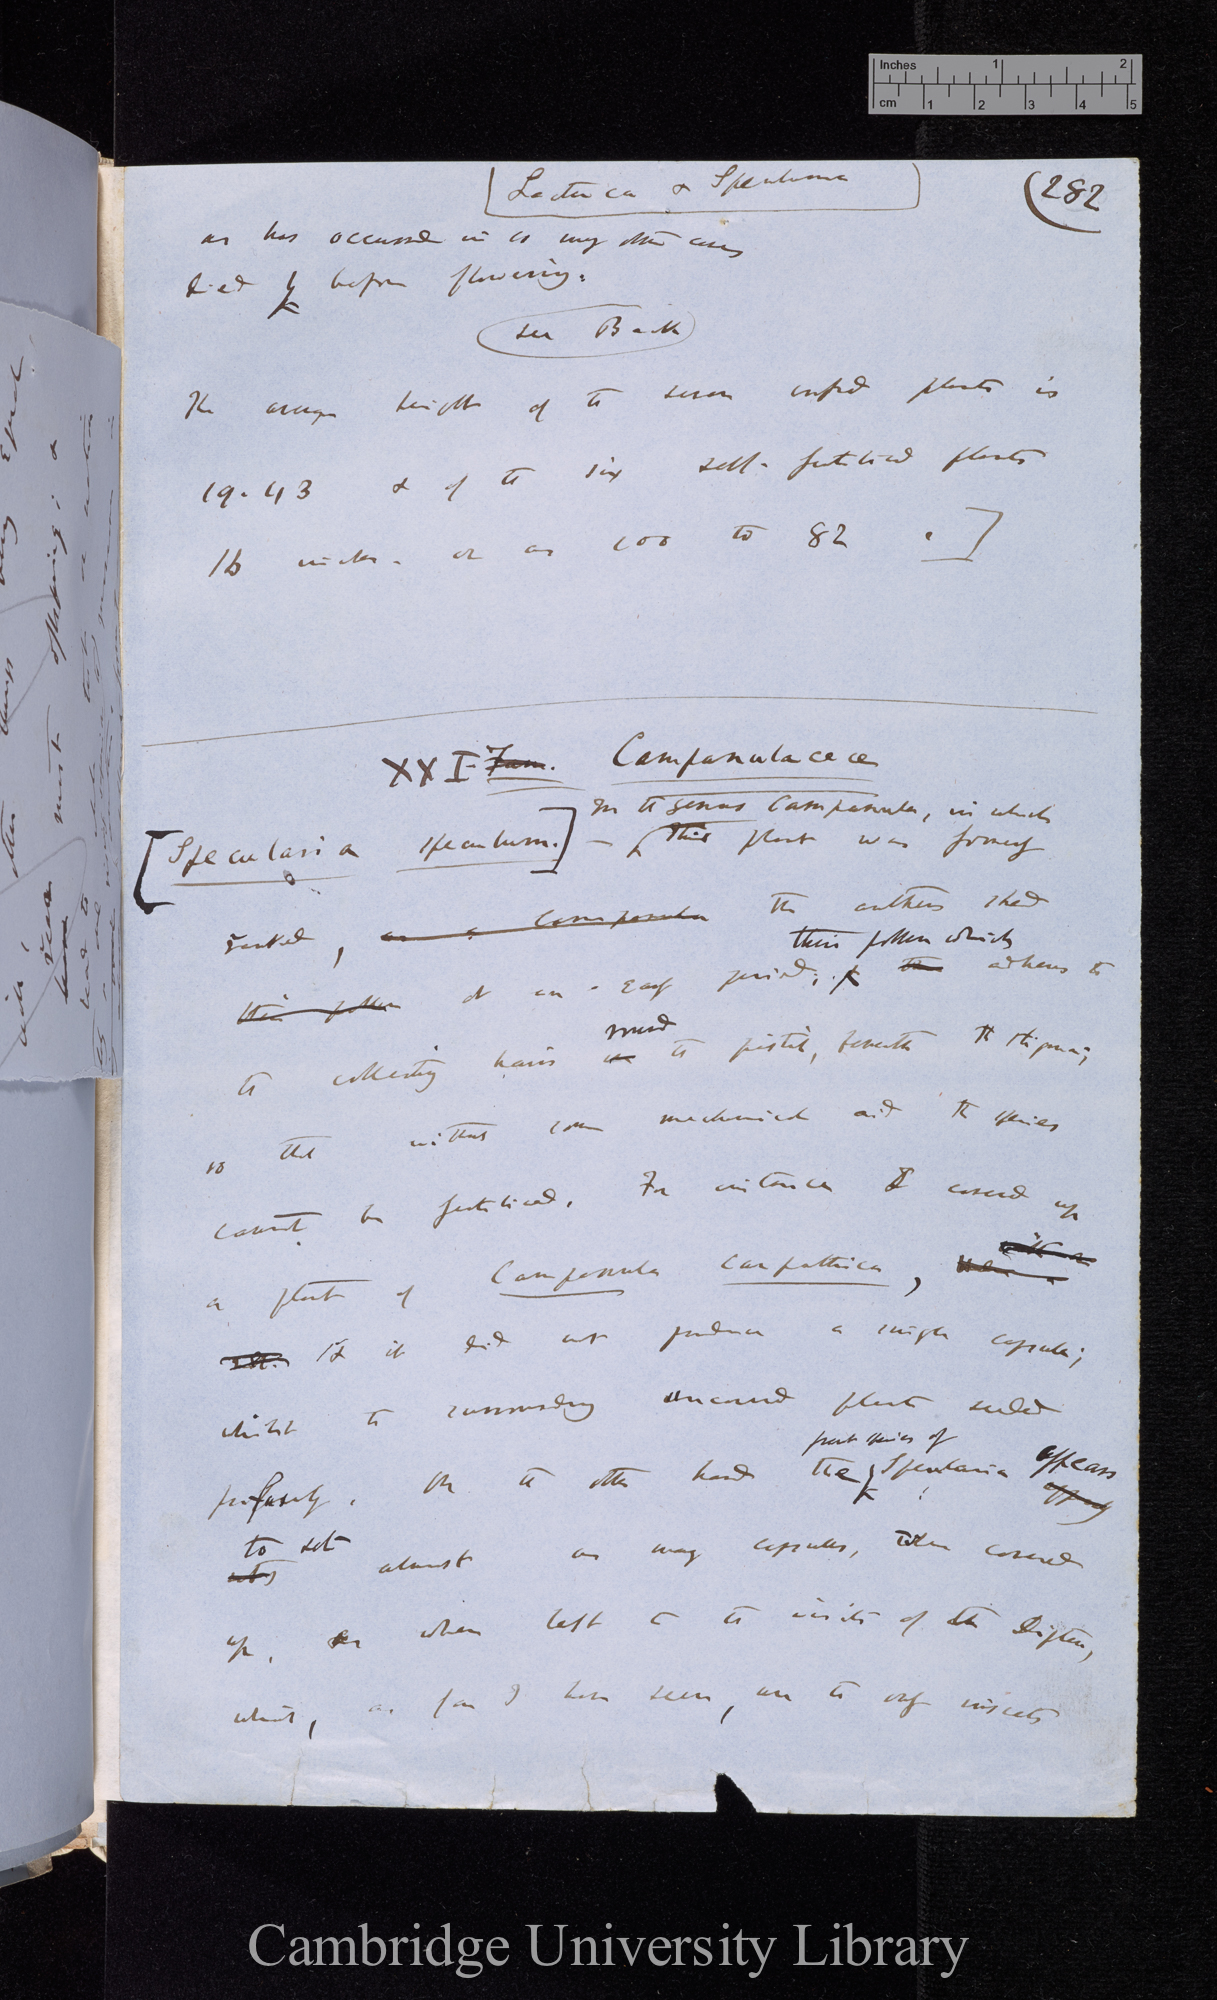 Inches 1 2
cm 1 2 3 4 5
Lactuca & Specularia
(282
as has occurred in so many other cases
died before flowering.
see Back
The average height of the seven crossed plants is
19.43 & of the six self-fertilised plants
16 inches. or as 100 to 82 . ]
XXI Fam. Campanulaceæ
In the genus Campanula, in which
[Specularia speculum.] — This plant was formerly
ranked, as a Campanula the anthers shed
their pollen which
their pollen at an early period; & the adheres to
round
the collecting hairs on the pistil, beneath the stigma;
so that without some mechanical aid the species
cannot be fertilised. For instance I covered up
a plant of Campanula carpathica,
& it did not produce a single capsule;
whilst the surrounding uncovered plants seeded
present species of
profusely. On the other hand the Specularia appears
to set
sets almost as many capsules, when covered
up, as when left to the visits of the Diptera,
which, as far I have seen, are the only insects
Cambridge University Library